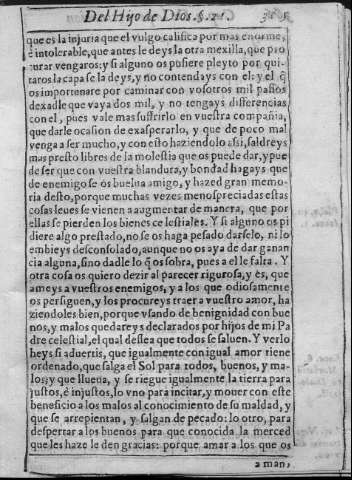 Del Hijo de Dios. §. 21.
que es la injuria que el vulgo califica por mas enorme,
è intolerable, que antes le deys la otra mexilla, que pro
curar vengaros: y si alguno os pusiere pleyto por qui-
taros la capa se la deys, y no contendays con el: y el q̃
os importunare por caminar con vosotros mil passos
dexadle que vaya dos mil, y no tengays differencias
con el, pues vale mas suffrirlo en vuestra compañia,
que darle ocasion de exasperarlo, y que de poco mal
venga a ser mucho, y con esto haziendolo assi, saldreys
mas presto libres de la molestia que os puede dar, y pue
de ser que con vuestra blandura, y bondad hagays que
de enemigo se os buelua amigo, y hazed gran memo-
ria desto, porque muchas vezes menospreciadas estas
cosas leues se vienen a augmentar de manera, que por
ellas se pierden los bienes celestiales. Y si alguno os pi
diere algo prestado, no se os haga pesado darselo, ni lo
embieys desconsolado, aunque no os aya de dar ganan
cia alguna, sino dadle lo q̃ os sobra, pues a el le falta. Y
otra cosa os quiero dezir al parecer rigurosa, y es, que
ameys a vuestros enemigos, y a los que odiosamente
os persiguen, y los procureys traer a vuestro amor, ha
ziendoles bien, porque vsando de benignidad con bue
nos, y malos quedareys declarados por hijos de mi Pa
dre celestial, el qual dessea que todos se saluen. Y verlo
heys si aduertis, que igualmente con igual amor tiene
ordenado, que salga el Sol para todos, buenos, y ma-
los; y que llueua, y se riegue igualmente la tierra para
justos, è injustos, lo vno para incitar, y mouer con este
beneficio a los malos al conocimiento de su maldad, y
que se arrepientan, y salgan de pecado: lo otro, para
despertar a los buenos para que conocida la merced
que les haze le den gracias: porque amar a los que os
aman,